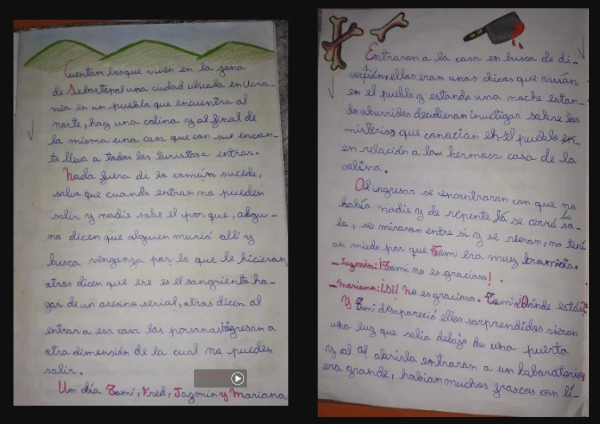 Cuentan los que viven en la zona
de Sebastapal una ciudad ubicada en Ucra-
nia en un pueblo que encuentra al
norte, hay una colina y al final de
la misma una casa que con sus encan-
to lleva a todos los turistas a entrar.
Nada fuera de lo común sucede,
salvo que cuando entran no pueden
salir y nadie sabe el por que, algu-
no dicen que alguien murió allí y
busca venganza por lo que le hicieran,
otros dicen que ese es el sangriento ho-
gar de un asesino serial, otros dicen al
entrar a esa casa las personas ingresan a
otra dimensión de la cual no pueden
salir.
Un día Tomi, Fred, Jazmin y Mariana
Entraron a la casa en busca de di-
versión, ellos eran unos chicos que vivían
en el pueblo y estando una noche estan-
do aburridos decidieron investigar sobre los
misterios que conocían en el pueblo
en relación a la hermosa casa de la
colina.
Al ingresar se encontraron con que no
había nadie y de repente se cerró so-
la, se miraron entre si y se rieron, no tení
an miedo por que Tomi era muy bromista.
-Jazmin: ¡Tomi no es gracioso!
-Mariana: ¡Si! No es gracioso. Tomi ¿Dónde estás?
Y Tomi desapareció ellos sorprendidos vieron
una luz que salía debajo de una puerta
y al abrirla entraron a un laboratorio,
era grande, habían muchos frascos con lí-